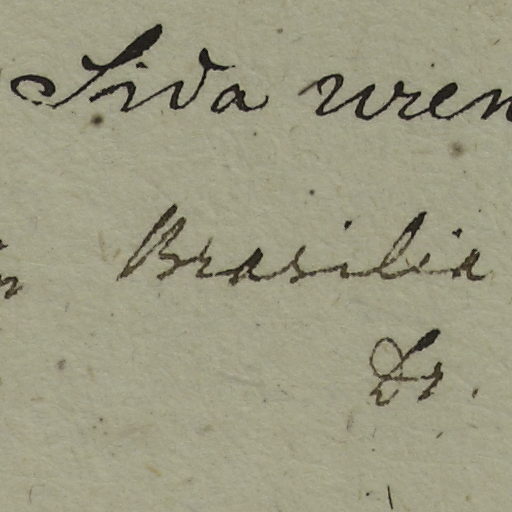 Sida uren
Brasilia
Dr.